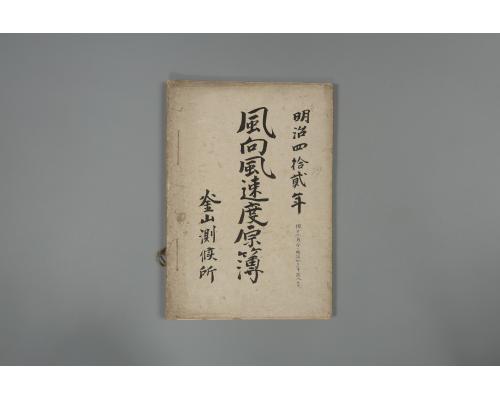 明治四拾貳年
風向風速度原簿
釜山測候所